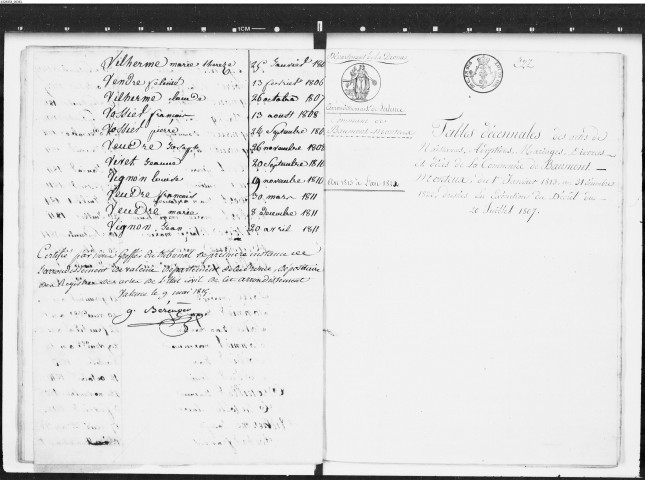 Vilherme marie thereze 25 Janvier
Vendre felicité 13 fevrier 1806
Vilherme Claude 26 octobre 1807
Vossier françois 13 aoust 1808
Vossier pierre 24 Septembre
Vendre Joseph 26 novembre 1808
Viret Jeanne 20 Septembre 1810
Vignon louise 19 novembre 1810
Vendre francois 30 mars 1811
Vendre marie 8 Decembre 1811
Vignon Jean 20 avril 1811
Certifié par nous Greffier du tribunal de premiere instance de
l'arrondissement de valence département de la Drome, dépositaire
des Registres des actes de l'état civil de cet arrondissement
Valence le 9 mai 1815
g. Bérenger
Département de la Drome
Arrondissement de Valence
Commune de
Beaumont-Monteux
An 1813 à l'an 1822
322
Tables décennales des actes de
Naissances, Mariages, Divorces
et Décès de la Commune de Beaumont-
Monteux, du 1er Janvier 1813 au 31 Décembre
1822, dressées en exécution du Décret du
20 Juillet 1807.